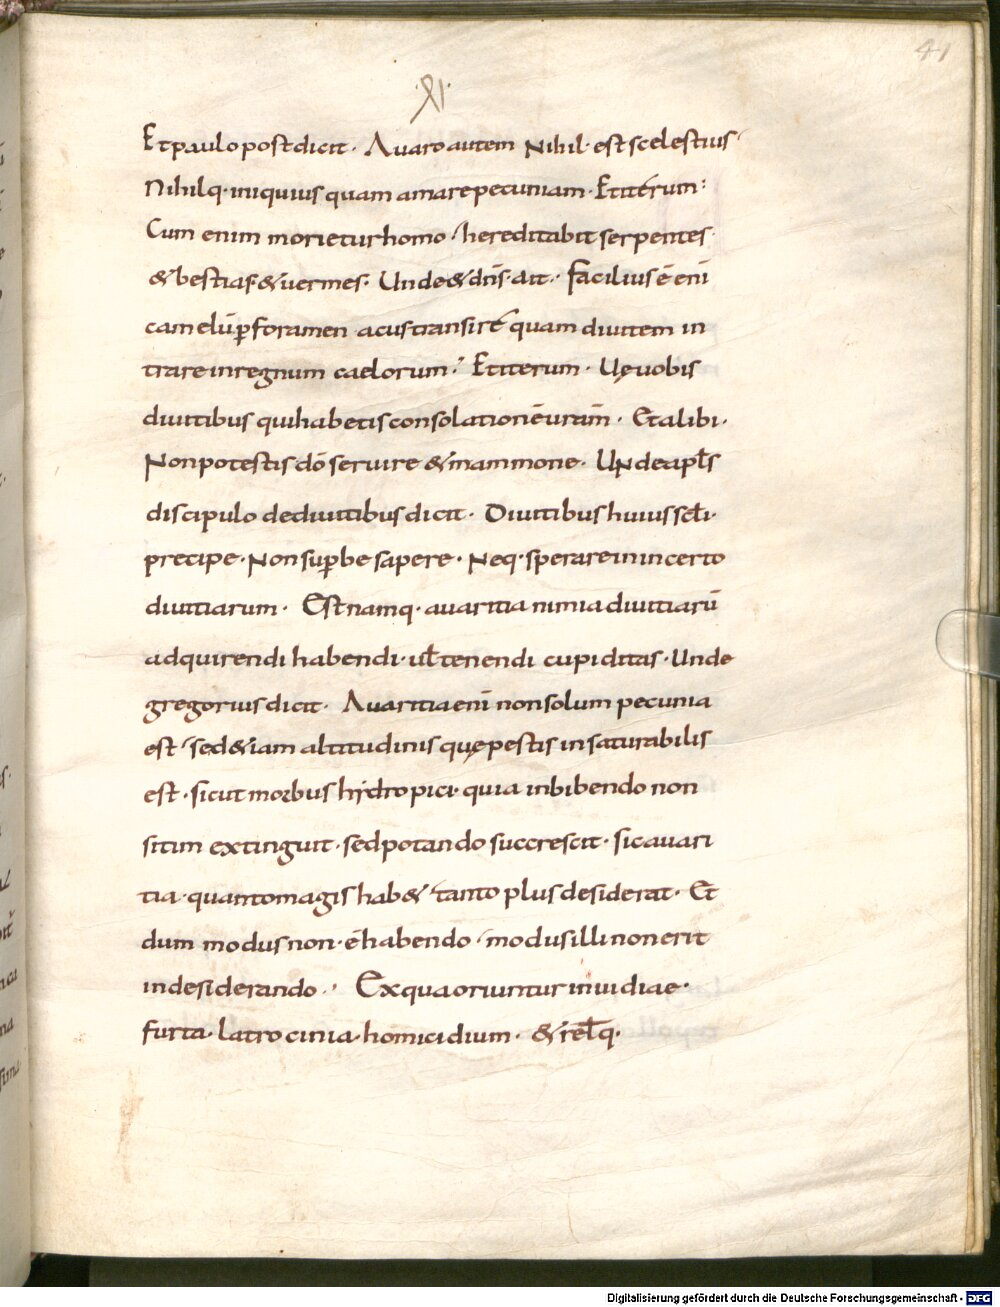 41
XI
Et paulo post dicit. Auaro autem Nihil. est scelestius.
Nihilq. iniquius quam amare pecuniam. Et iterum:
Cum enim morietur homo. hereditabit serpentes.
& bestias & uermes. Unde & dn̄s. ait. facilius ē enī
camelū ꝑ foramen acus transire quam diuitem in
trare in regnum caelorum. Et iterum. Uę uobis
diuitibus qui habetis consolationē uram̄. Et alibi.
Non potestis dō seruire & mammone. Unde apl̄s
discipulo de diuitibus dicit. Diuitibus huius scl̄i.
precipe. Non suꝑbe sapere. Neq. sperare in incerto
diuitiarum. Est namq. auaritia nimia diuitiarū
adquirendi habendi. ul̄ tenendi cupiditas. Unde
gregorius dicit. Auaritia enī non solum pecunia
est. sed &iam altitudinis quę pestis insaturabilis
est. sicut morbus hydropici. quia inbibendo non
sitim extinguit. sed potando succrescit. sic auari
tia. quanto magis hab&. tanto plus desiderat. Et
dum modus non. ē habendo. modus illi non erit
in desiderando. Ex qua oriuntur inuidiae.
furta. latrocinia. homicidium. & rel̄q.
Digitalisierung gefördert durch die Deutsche Forschungsgemeinschaft - DFG